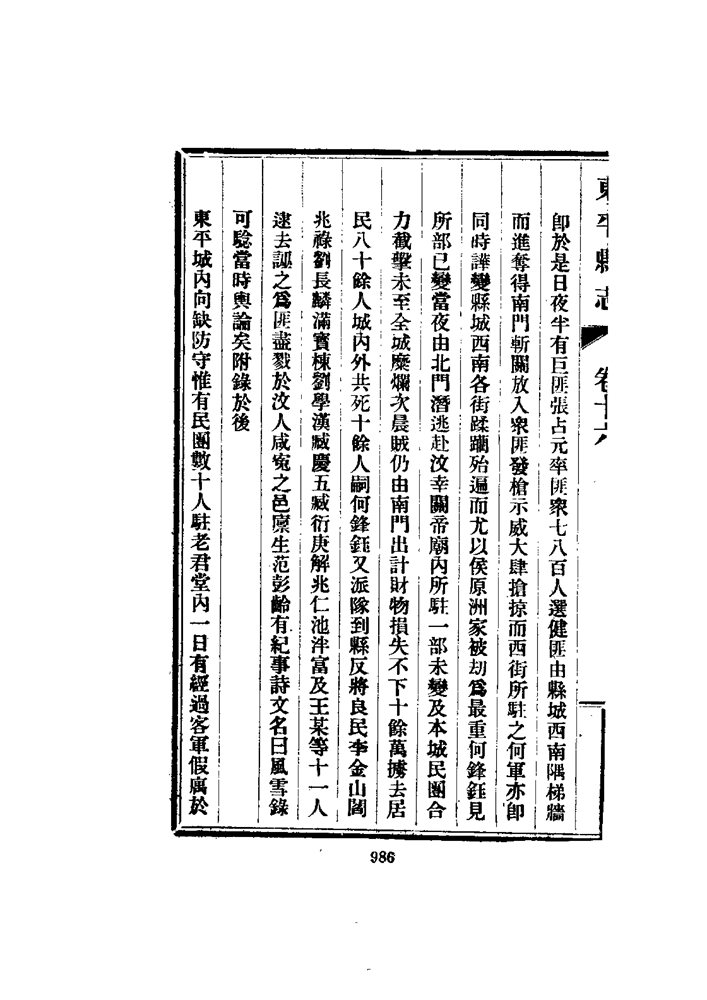 東平縣志 卷十六
卽於是日夜半有巨匪張占元率匪衆七八百人選健匪由縣城西南隅梯牆
而進奪得南門斬關放入衆匪發槍示威大肆搶掠而西街所駐之何軍亦卽
同時譁變縣城西南各街蹂躪殆遍而尤以侯原洲家被刧爲最重何鋒鈺見
所部已變當夜由北門潛逃赴汶幸關帝廟內所駐一部未變及本城民團合
力截擊未至全城糜爛次晨賊仍由南門出計財物損失不下十餘萬擄去居
民八十餘人城內外共死十餘人嗣何鋒鈺又派隊到縣反將良民李金山閻
兆祿劉長麟滿寶棟劉學漢臧慶五臧衍庚解兆仁池泮富及王某等十一人
逮去誣之爲匪盡戮於汶人咸寃之邑廩生范彭齡有紀事詩文名曰風雪錄
可騐當時輿論矣附錄於後
東平城內向缺防守惟有民團數十人駐老君堂內一日有經過客軍假寓於
986